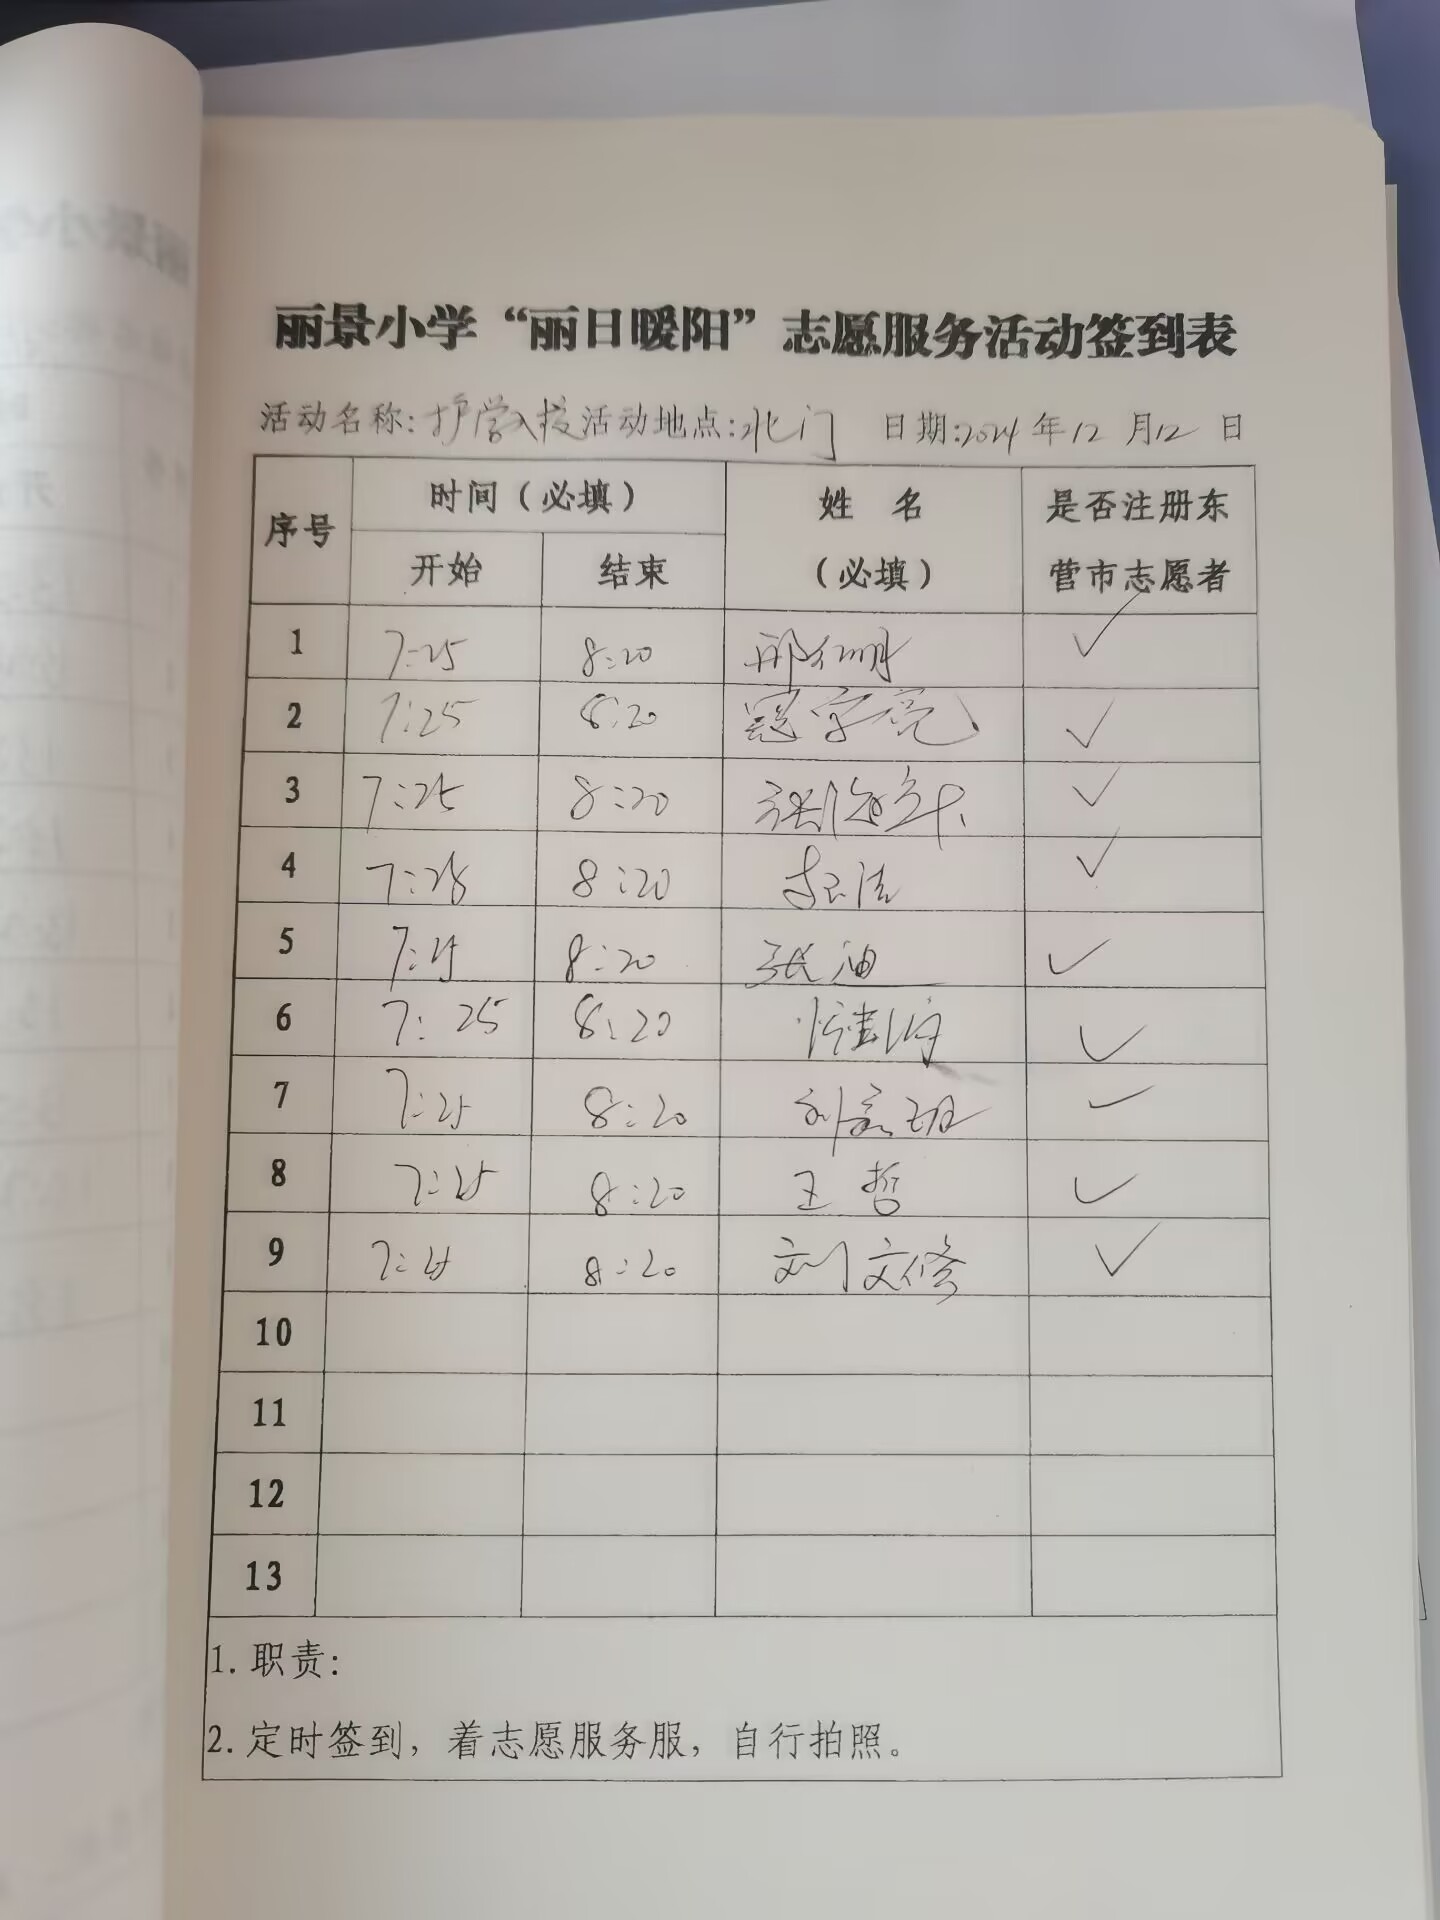 丽景小学“丽日暖阳”志愿服务活动签到表
活动名称:护学入校 活动地点:北门 日期:2024年12月12日
序号 时间(必填) 姓 名 是否注册东
开始 结束 (必填) 营市志愿者
1 7:25 8:20 ✓
2 7:25 8:20 ✓
3 7:25 8:20 ✓
4 7:25 8:20 ✓
5 7:25 8:20 张迪 ✓
6 7:25 8:20 ✓
7 7:25 8:20 ✓
8 7:25 8:20 王哲 ✓
9 7:25 8:20 刘文修 ✓
10
11
12
13
1. 职责:
2. 定时签到，着志愿服务服，自行拍照。